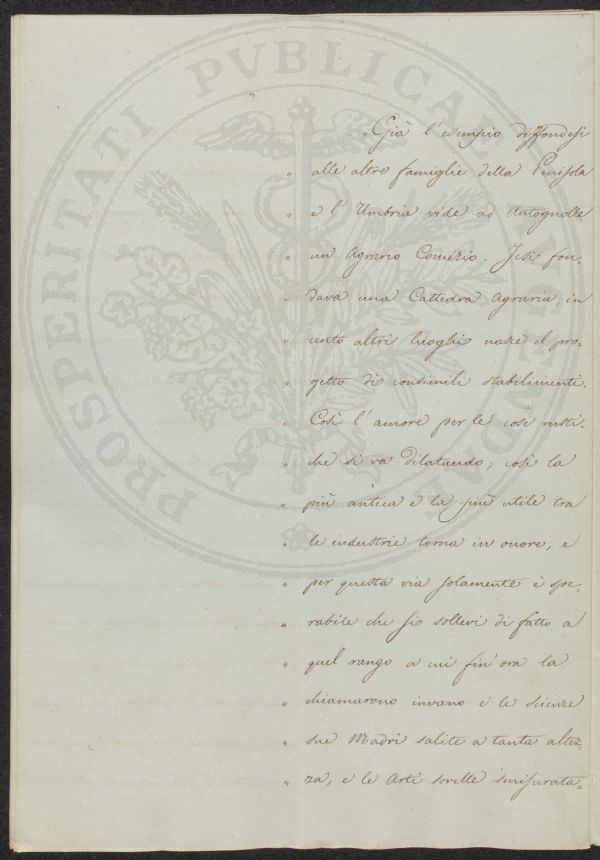 „ Già l'esempio diffondesi
„ alle altre famiglie della Penisola
„ e l'Umbria vide ad Antognolle
„ un Agrario Comizio. Jesi fon-
„ dava una Cattedra Agraria, in
„ cento altri luoghi nasce il pro-
„ getto di consimili stabilimenti.
„ Così l'amore per le cose rusti-
„ che si va dilatando; così la
„ più antica e la più utile tra
„ le industrie torna in onore, e
„ per questa via solamente è spe-
„ rabile che si sollevi di fatto a
„ quel rango a cui fin'ora la
„ chiamarono invano e le scienze
„ sue Madri salite a tanta altez-
„ za, e le Arti sorelle smisurata-
PROSPERITATI PVBLICAE AVGENDAE